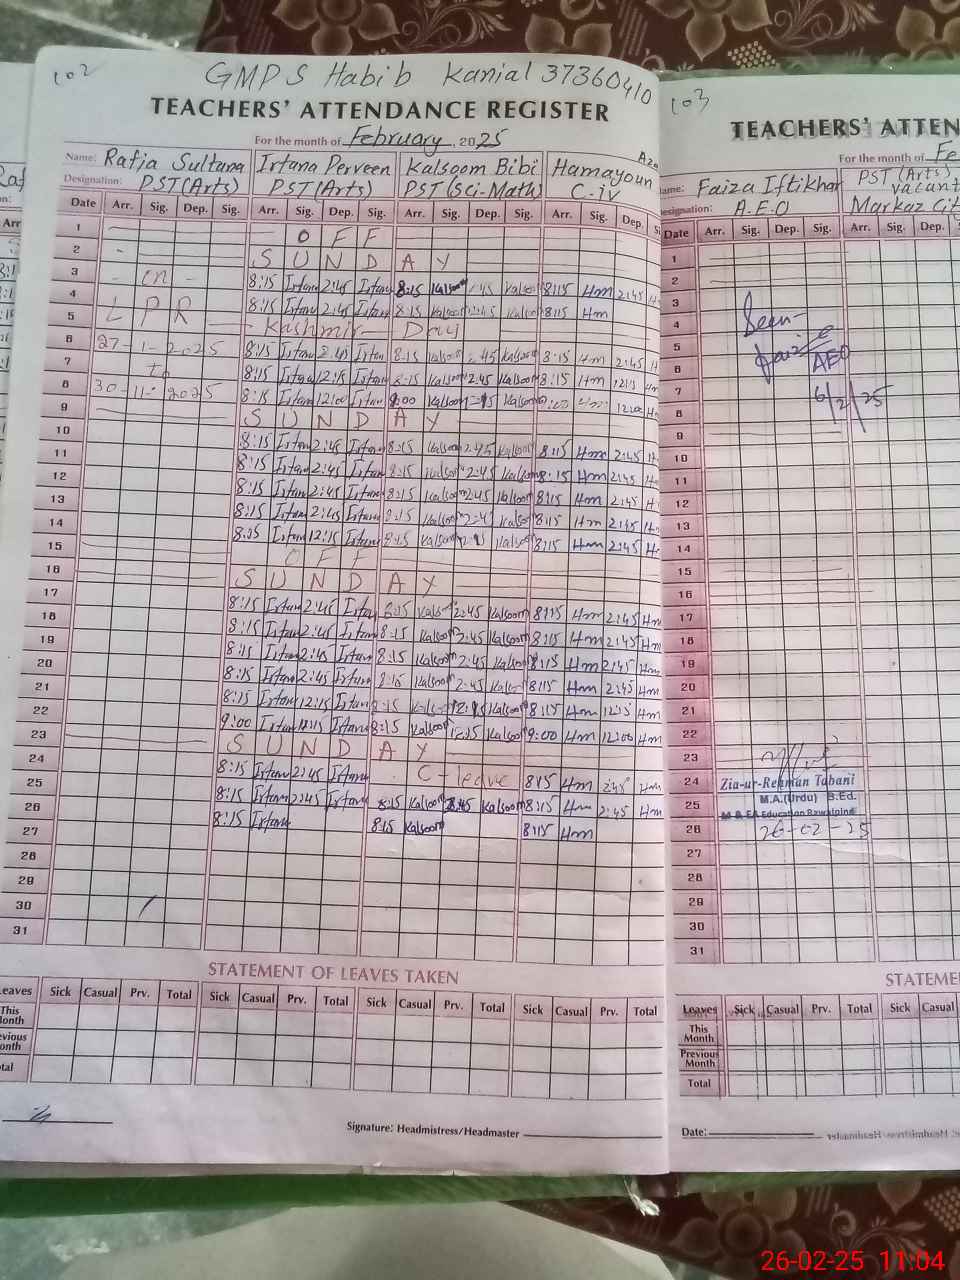 102
GMPS Habib Kanial 37360410
TEACHERS' ATTENDANCE REGISTER
For the month of February, 2025
Name: Rafia Sultana Irfana Perveen Kalsoom Bibi Hamayoun
Designation: PST(Arts) PST(Arts) PST(Sci-Math) C-iv
Date Arr. Sig. Dep. Sig. Arr. Sig. Dep. Sig. Arr. Sig. Dep. Sig. Arr. Sig. Dep.
1 OFF
2 SUNDAY
3 on 8:15 Irfana 2:45 Irfana 8:15 Kalsoom 2:45 Kalsoom 8:15 Hm 2:45 H
4 LPR 8:15 Irfana 2:45 Irfana 8:15 Kalsoom 2:45 Kalsoom 8:15 Hm
5 Kashmir Day
6 27-1-2025 8:15 Irfana 2:45 Irfan 8:15 Kalsoom 2:45 Kalsoom 8:15 Hm 2:45 H
7 to 8:15 Irfana 12:15 Irfana 8:15 Kalsoom 2:45 Kalsoom 8:15 Hm 12:15 H
8 30-11-2025 8:15 Irfan 12:00 Irfana 9:00 Kalsoom Kalsoom 9:00 Hm 12:00 H
9 SUNDAY
10 8:15 Irfana 2:45 Irfana 8:15 Kalsoom 2:45 Kalsoom 8:15 Hm 2:45 H
11 8:15 Irfana 2:45 Irfana 8:15 Kalsoom 2:45 Kalsoom 8:15 Hm 2:45 H
12 8:15 Irfana 2:45 Irfana 8:15 Kalsoom 2:45 Kalsoom 8:15 Hm 2:45 H
13 8:15 Irfana 2:45 Irfana 8:15 Kalsoom 2:45 Kalsoom 8:15 Hm 2:45 H
14 Irfana 12:15 Irfana 8:15 Kalsoom Kalsoom 8:15 Hm 2:45 H
15 OFF
16 SUNDAY
17 8:15 Irfana 2:45 Irfana 8:15 Kalsoom 2:45 Kalsoom 8:15 Hm 2:45 Hm
18 8:15 Irfana 2:45 Irfana 8:15 Kalsoom 2:45 Kalsoom 8:15 Hm 2:45 Hm
19 8:15 Irfana 2:45 Irfana 8:15 Kalsoom 2:45 Kalsoom 8:15 Hm 2:45 Hm
20 8:15 Irfana 2:45 Irfana 8:15 Kalsoom 2:45 Kalsoom 8:15 Hm 2:45 Hm
21 8:15 Irfana 12:15 Irfana 8:15 Kalsoom 12:15 Kalsoom 8:15 Hm 12:15 Hm
22 9:00 Irfana Irfana 8:15 Kalsoom 12:15 Kalsoom 9:00 Hm 12:00 Hm
23 SUNDAY
24 8:15 Irfana 2:45 Irfana C-leave 8:15 Hm 2:45 Hm
25 8:15 Irfana 2:45 Irfana 8:15 Kalsoom 2:45 Kalsoom 8:15 Hm 2:45 Hm
26 8:15 Irfana 8:15 Kalsoom 8:15 Hm
27
28
29
30
31
STATEMENT OF LEAVES TAKEN
Leaves Sick Casual Prv. Total Sick Casual Prv. Total Sick Casual Prv. Total Sick Casual Prv. Total
This Month
Previous Month
Total
Signature: Headmistress/Headmaster
103
TEACHERS' ATTEN
For the month of Fe
Name: Faiza Iftikhar PST (Arts) vacant
Designation: A.E.O Markaz City
Date Arr. Sig. Dep. Sig. Arr. Sig. Dep.
1
2
3
4 Seen
5
6 AEO
7
8 6/2/25
9
10
11
12
13
14
15
16
17
18
19
20
21
22
23
24 Zia-ur-Rehman Tabani
25 M.A.(Urdu) B.Ed.
M & EA Education Rawalpindi
26 26-02-25
27
28
29
30
31
STATEME
Leaves Sick Casual Prv. Total Sick Casual
This Month
Previous Month
Total
Date:
26-02-25 11:04